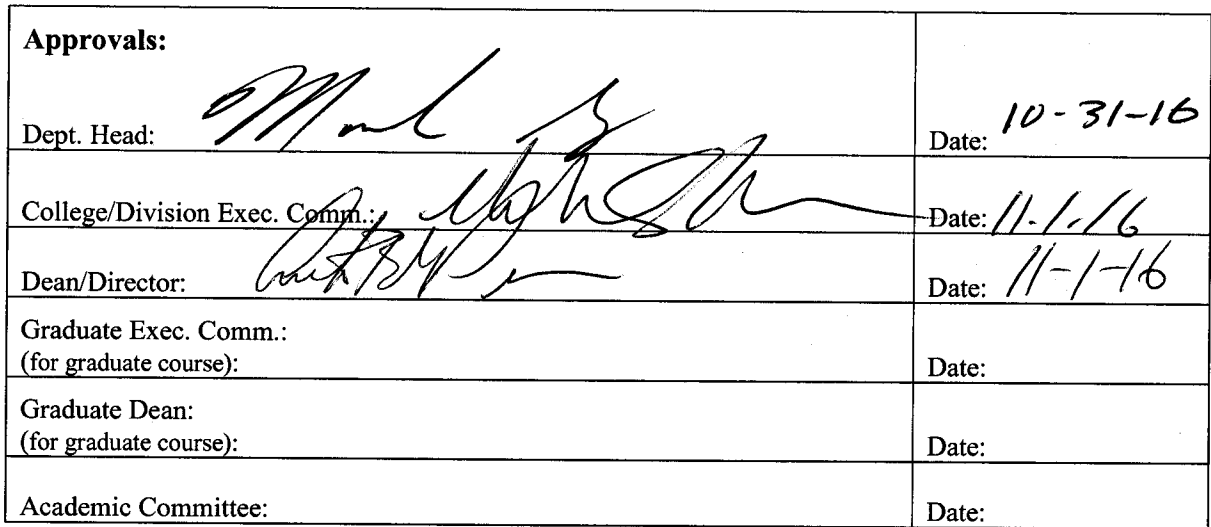 Approvals:
Dept. Head: Date: 10-31-16
College/Division Exec. Comm.: Date: 11.1.16
Dean/Director: Date: 11-1-16
Graduate Exec. Comm.:
(for graduate course): Date:
Graduate Dean:
(for graduate course): Date:
Academic Committee: Date: